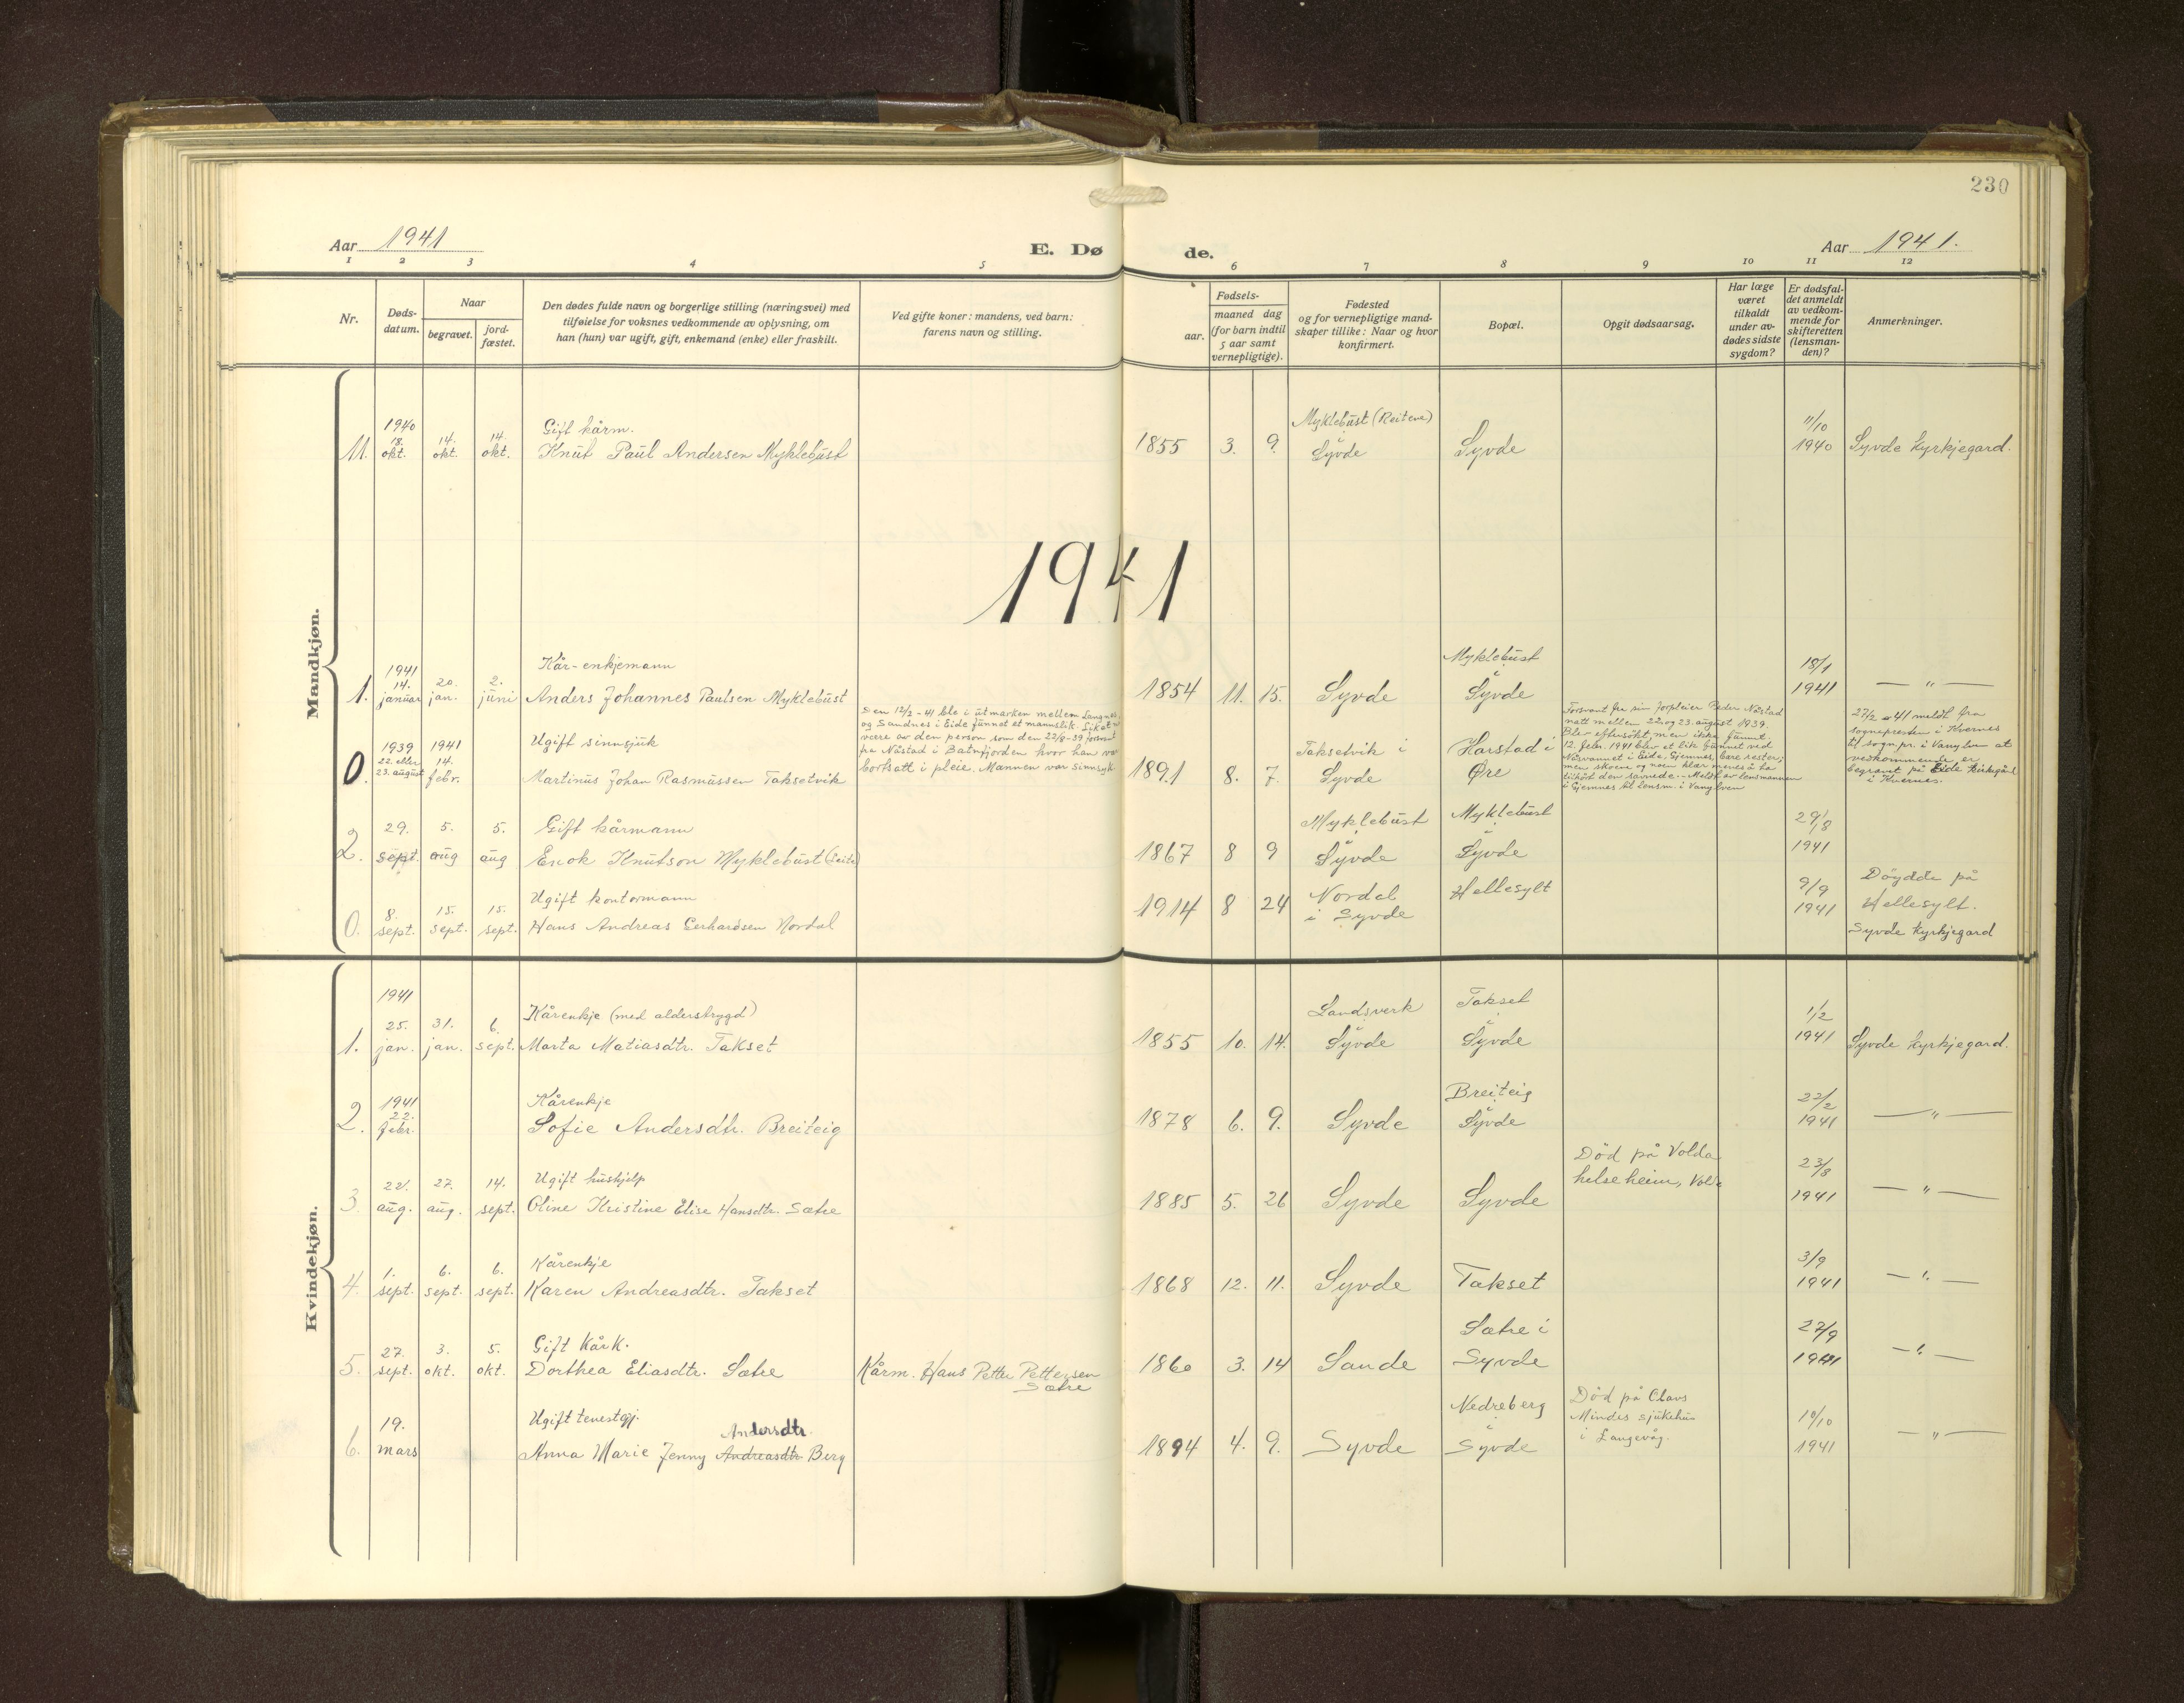 230
Aar 1941
E. Dø
de.
Aar 1941.
1 2 3 4 5 6 7 8 9 10 11 12
Nr.
Døds-
datum.
Naar
begravet.
jord-
fæstet.
Den dødes fulde navn og borgerlige stilling (næringsvei) med
tilføielse for voksnes vedkommende av oplysning, om
han (hun) var ugift, gift, enkemand (enke) eller fraskilt.
Ved gifte koner: mandens, ved barn:
farens navn og stilling.
Fødsels-
aar.
maaned dag
(for barn indtil
5 aar samt
vernepligtige).
Fødested
og for vernepligtige mand-
skaper tillike: Naar og hvor
konfirmert.
Bopæl.
Opgit dødsaarsag.
Har læge
været
tilkaldt
under av-
dødes sidste
sygdom?
Er dødsfal-
det anmeldt
av vedkom-
mende for
skifteretten
(lensman-
den)?
Anmerkninger.
Mandkjøn.
1940 Gift kårm. Myklebust (Reitene) 11/10
11. 18. okt. 14. okt. 14. okt. Knut Paul Andersen Myklebust 1855 3. 9. i Syvde Syvde 1940 Syvde kyrkjegard.
1941
1941 Kår-enkjemann Myklebust 18/1
1. 14. januar 20. jan. 2. juni Anders Johannes Paulsen Myklebust 1854 11. 15. Syvde i Syvde 1941 — " —
Den 12/2-41 ble i utmarken mellem Langnes
og Sandnes i Eide funnet et mannslik. Liket
være av den person som den 22/8-39 forsvant
fra Nåstad i Batnfjorden hvor han var
bortsatt i pleie. Mannen var sinnsyk
Forsvant fra sin forpleier Peder Nåstad
natt mellem 22. og 23. august 1939.
Blev eftersøkt, men ikke funnet.
12. febr. 1941 blev et lik funnet ved
Nåsvannet i Eide, Gjemnes, bare rester;
men skoene og noen klær menes å ha
tilhørt den savnede. - Meldt av lensmannen
i Gjemnes til lensm. i Vanylven
27/2-41 meldt fra
sognepresten i Kvernes
til sogn.pr. i Vanylven at
vedkommende er
begravt på Eide kirkegård
i Kvernes.
1939 1941 Ugift sinnsjuk Taksetvik i Harstad i
0. 22. eller 23. august 14. febr. Martinus Johan Rasmussen Taksetvik 1891 8. 7. Syvde Øre
29. 5. 5. Gift kårmann Myklebust Myklebust 29/8
2. sept. aug aug Enok Knutson Myklebust 1867 8 9 i Syvde i Syvde 1941
Ugift kontormann Nordal Hellesylt 9/9 Døydde på
0. 8. sept. 15. sept. 15. sept. Hans Andreas Gerhardsen Nordal 1914 8 24 i Syvde 1941 Hellesylt.
Syvde kyrkjegard
Kvindekjøn.
1941
Kårenkje (med alderstrygd) Landsverk Takset 1/2
1. 25. jan. 31. jan. 6. sept. Marta Matiasdtr. Takset 1855 10. 14. i Syvde i Syvde 1941 Syvde kyrkjegard.
1941 Kårenkje Breiteig 22/2
2. 22. febr. Sofie Andersdtr. Breiteig 1878 6. 9. Syvde i Syvde 1941 — " —
Ugift hushjelp Død på Volda 23/8
3. 22. aug. 27. aug. 14. sept. Oline Kristine Elise Hansdtr. Sætre 1885 5. 26 Syvde Syvde helseheim, Volda 1941 — " —
Kårenkje 3/9
4. 1. sept. 6. sept. 6. sept. Karen Andreasdtr. Takset 1868 12. 11. Syvde Takset 1941 — " —
Gift kårk. Sætre i 27/9
5. 27. sept. 3. okt. 5. okt. Dorthea Eliasdtr. Sætre Kårm. Hans Petter Pettersen Sætre 1860 3. 14 Sande Syvde 1941 — " —
Ugift tenestgj. Andersdtr. Nedreberg Død på Olavs 10/10
6. 19. mars Anna Marie Jenny Andreasdtr. Berg 1894 4. 9. Syvde i Syvde Mindes sjukehus i Langevåg. 1941 — " —